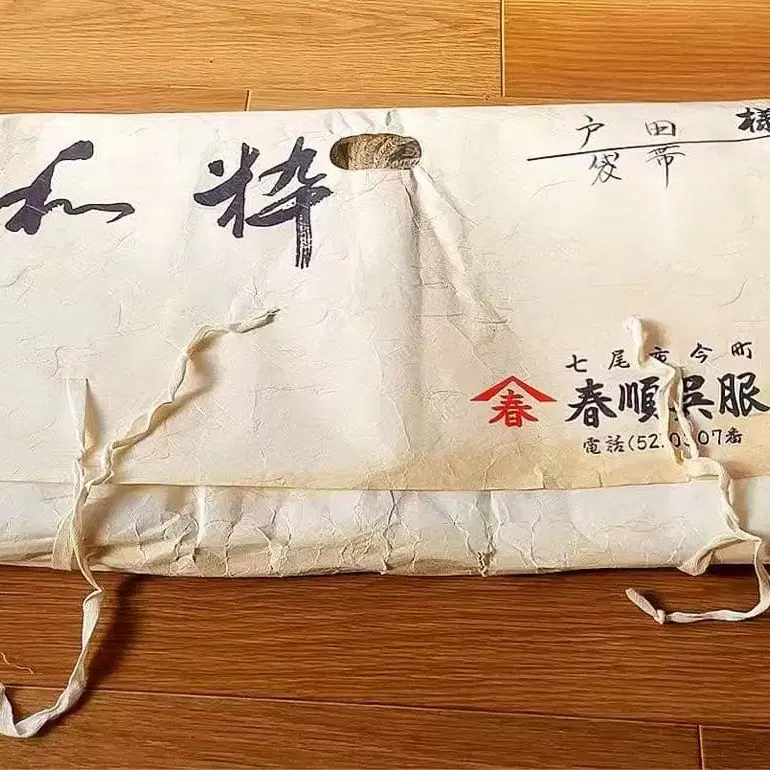 和粋
戸田 様
袋帯
七尾市今町
春 春順呉服
電話(52.0307番